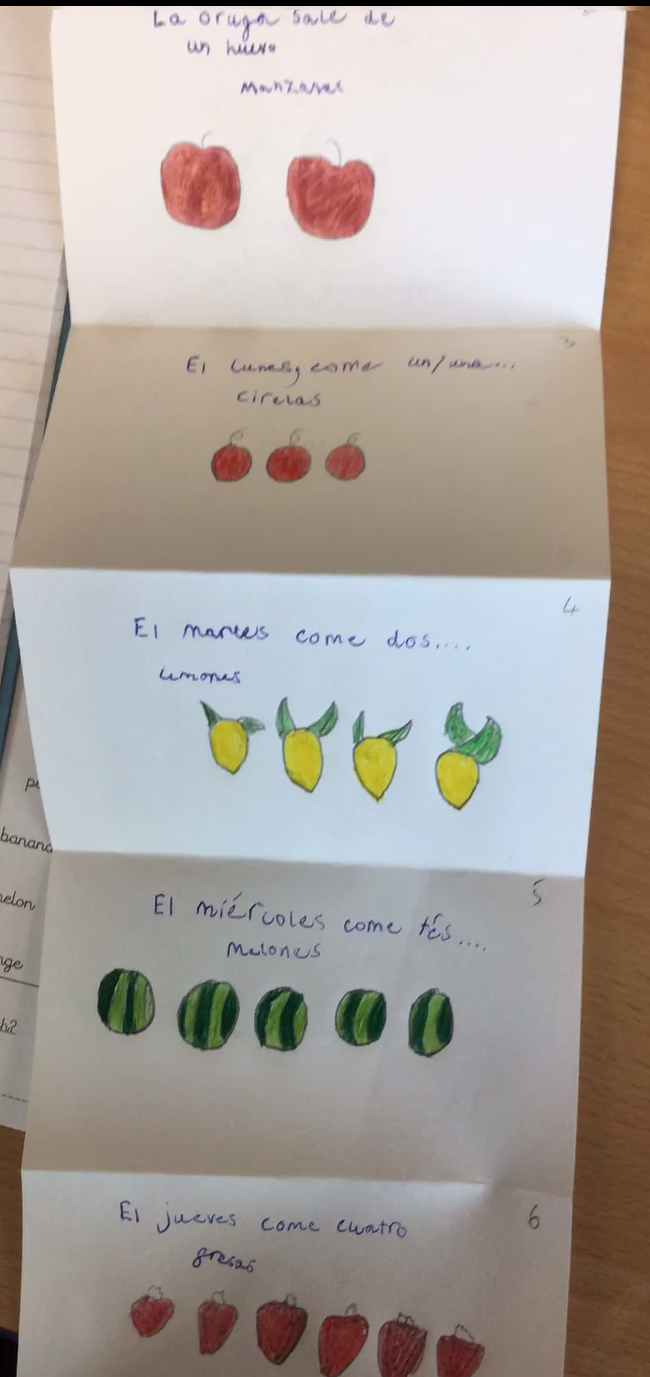 La oruga sale de
un huevo
Manzanas
3
El lunes, come un/una...
cirelas
4
El martes come dos....
limones
5
El miércoles come tés....
Melones
6
El jueves come cuatro
fresas
banana
elon
nge
h2